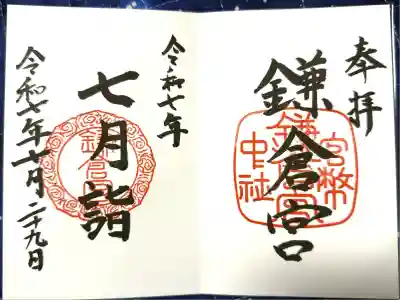 奉拝
鎌倉宮
鎌倉宮
官幣中社
令和七年
七月詣
鎌倉宮
令和七年七月二十九日